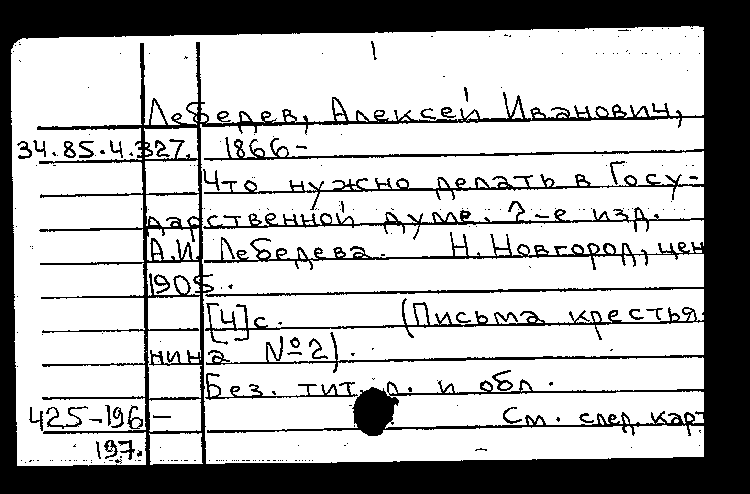 1
Лебедев, Алексей Иванович,
34.85.4.327. 1866-
Что нужно делать в Госу-
дарственной думе. 2-е изд.
А.И. Лебедева. Н. Новгород, цен
1905.
[4]с. (Письма крестья-
нина №2).
Без. тит. л. и обл.
425-196 — См. след. карт
197.